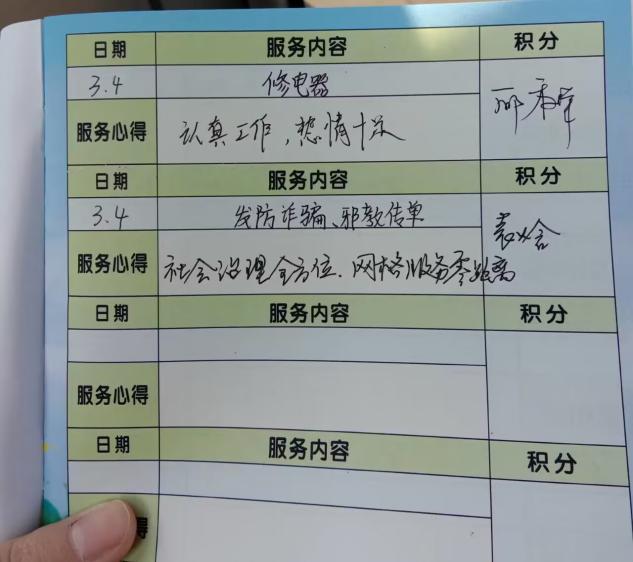 日期 服务内容 积分
3.4 修电器
服务心得 认真工作，热情十足
日期 服务内容 积分
3.4 发防诈骗、邪教传单
服务心得 社会治理全方位．网格服务零距离
日期 服务内容 积分
服务心得
日期 服务内容 积分
得